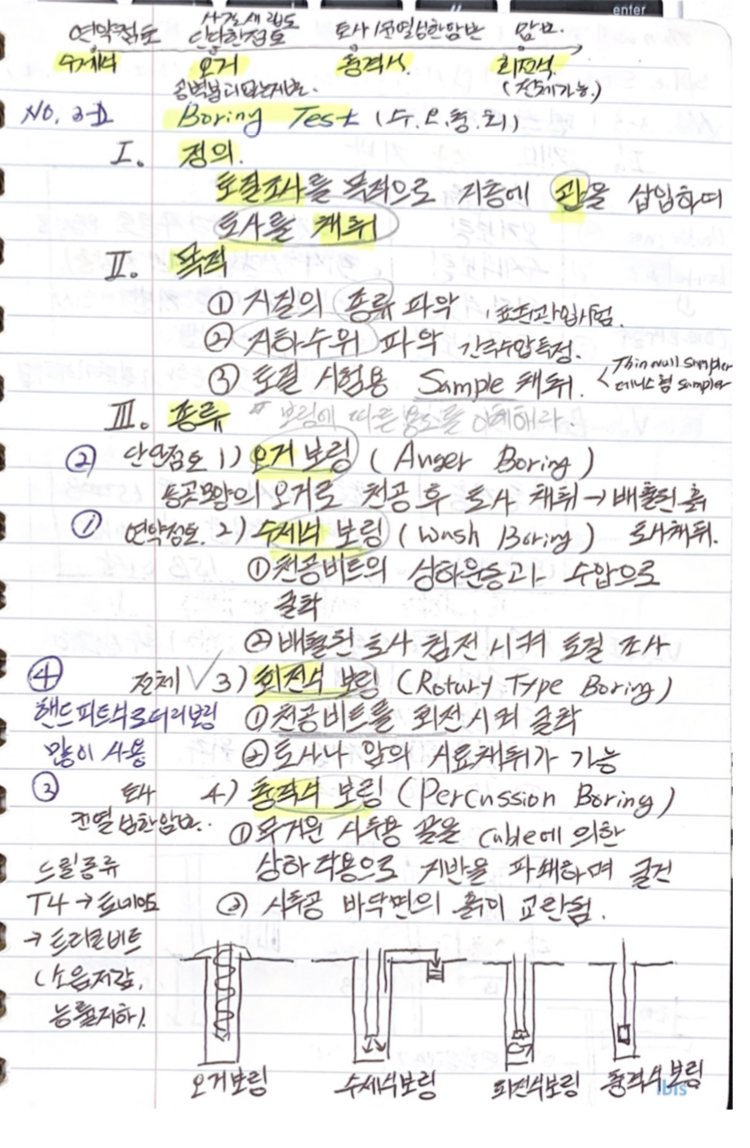 enter
연약점토 단단한점토 토사/균열심한암반 암반.
수세식 오거 충격식 회전식
공벽붕괴없는지반. (전체가능)
NO. 3-1 Boring Test (수.오.충.회)
I. 정의.
토질조사를 목적으로 지중에 관을 삽입하여
토사를 채취
II. 목적
① 지질의 종류 파악, 표준관입시험.
② 지하수위 파악 간극수압측정.
③ 토질 시험용 Sample 채취. < Thin wall sampler
데니스형 sampler
III. 종류 # 보링에 따른 용도를 이해해라.
② 단단점토 1) 오거 보링 (Auger Boring)
송곳모양의 오거로 천공 후 토사 채취 → 배출된 흙
① 연약점토. 2) 수세식 보링 (Wash Boring) 토사채취.
① 천공비트의 상하운동과 수압으로
굴착
② 배출된 토사 침전시켜 토질 조사
④ 전체 ✓ 3) 회전식 보링 (Rotary Type Boring)
핸드피트식로터리보링 ① 천공비트를 회전시켜 굴착
많이 사용 ② 토사나 암의 시료채취가 가능
③ 토사 4) 충격식 보링 (Percussion Boring)
균열심한암반.. ① 무거운 시추용 끌을 cable에 의한
드릴종류 상하작용으로 지반을 파쇄하며 굴진
T4 → 토네이도 ② 시추공 바닥면의 흙이 교란됨.
→ 트리콘비트
(소음저감,
능률저하).
오거보링 수세식보링 회전식보링 충격식보링
ibis